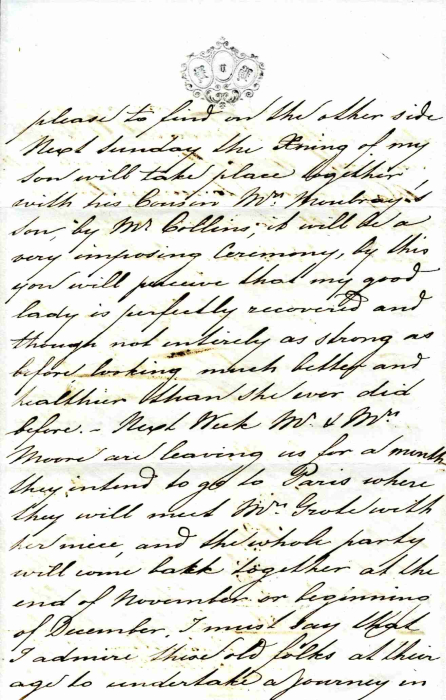 please to find on the other side
Next Sunday the Xning of my
son will take place together
with his Cousin Mr. Moubray's
son, by Mr. Collins, it will be a
very imposing Ceremony, by this
you will perceive that my good
lady is perfectly recovered and
though not entirely as strong as
before, looking much better and
healthier than she ever did
before. - Next Week Mr & Mrs
Moore are leaving us for a month
they intend to go to Paris where
they will meet Mrs Grote with
her niece, and the whole party
will come back together at the
end of November or beginning
of December. I must say that
I admire those old folks at their
age to undertake a journey in